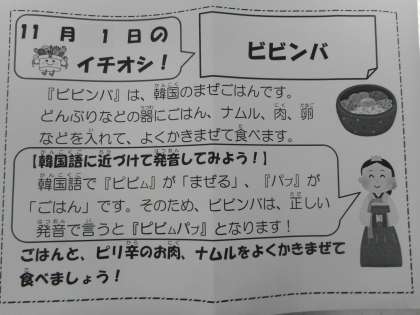 11月1日の
イチオシ！
ビビンバ
『ビビンバ』は、韓国のまぜごはんです。
どんぶりなどの器にごはん、ナムル、肉、卵
などを入れて、よくかきまぜて食べます。
【韓国語に近づけて発音してみよう！】
韓国語で『ピビㇺ』が「まぜる」、『パㇷ゚』が
「ごはん」です。そのため、ビビンバは、正しい
発音で言うと『ピビㇺパㇷ゚』となります！
ごはんと、ピリ辛のお肉、ナムルをよくかきまぜて
食べましょう！